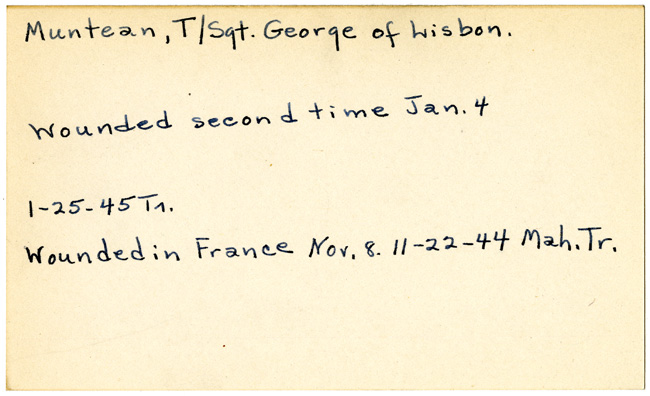 Muntean, T/Sgt. George of Lisbon.
Wounded second time Jan. 4
1-25-45 Tr.
Wounded in France Nov. 8. 11-22-44 Mah. Tr.